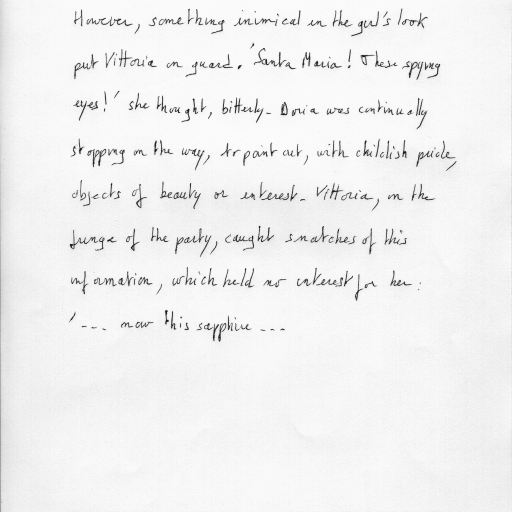 However, something inimical in the girl's look
put Vittoria on guard. 'Santa Maria! These spying
eyes!' she thought, bitterly. Doria was continually
stopping on the way, to point out, with childish pride,
objects of beauty or interest. Vittoria, on the
fringe of the party, caught snatches of this
information, which held no interest for her:
'... now this sapphire ...